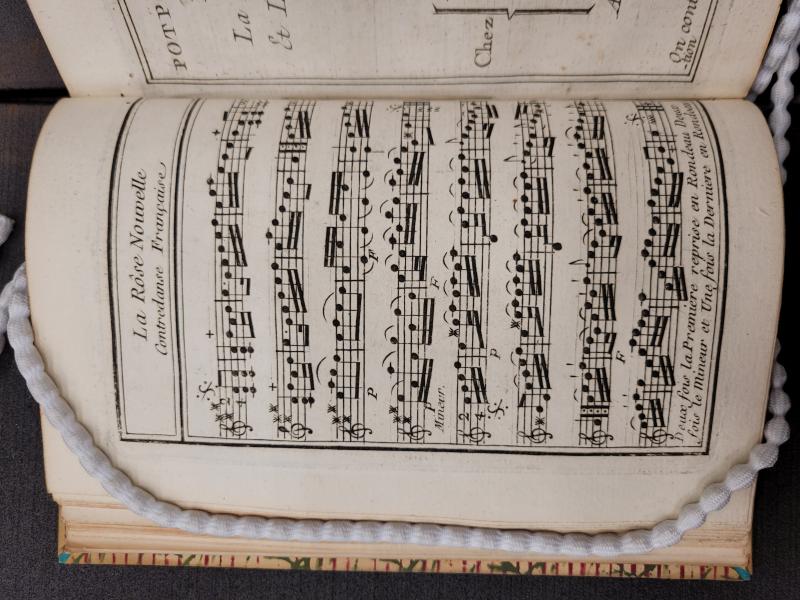 POTP
La
Et L
Chez
On cont
tion
La Rose Nouvelle
Contredanse Française
2
P
F
P
F
Mineur.
2
4
P
F
Deux fois la Premiere reprise en Rondeau Deux
fois le Mineur et Une fois la Derniere en Rondeau